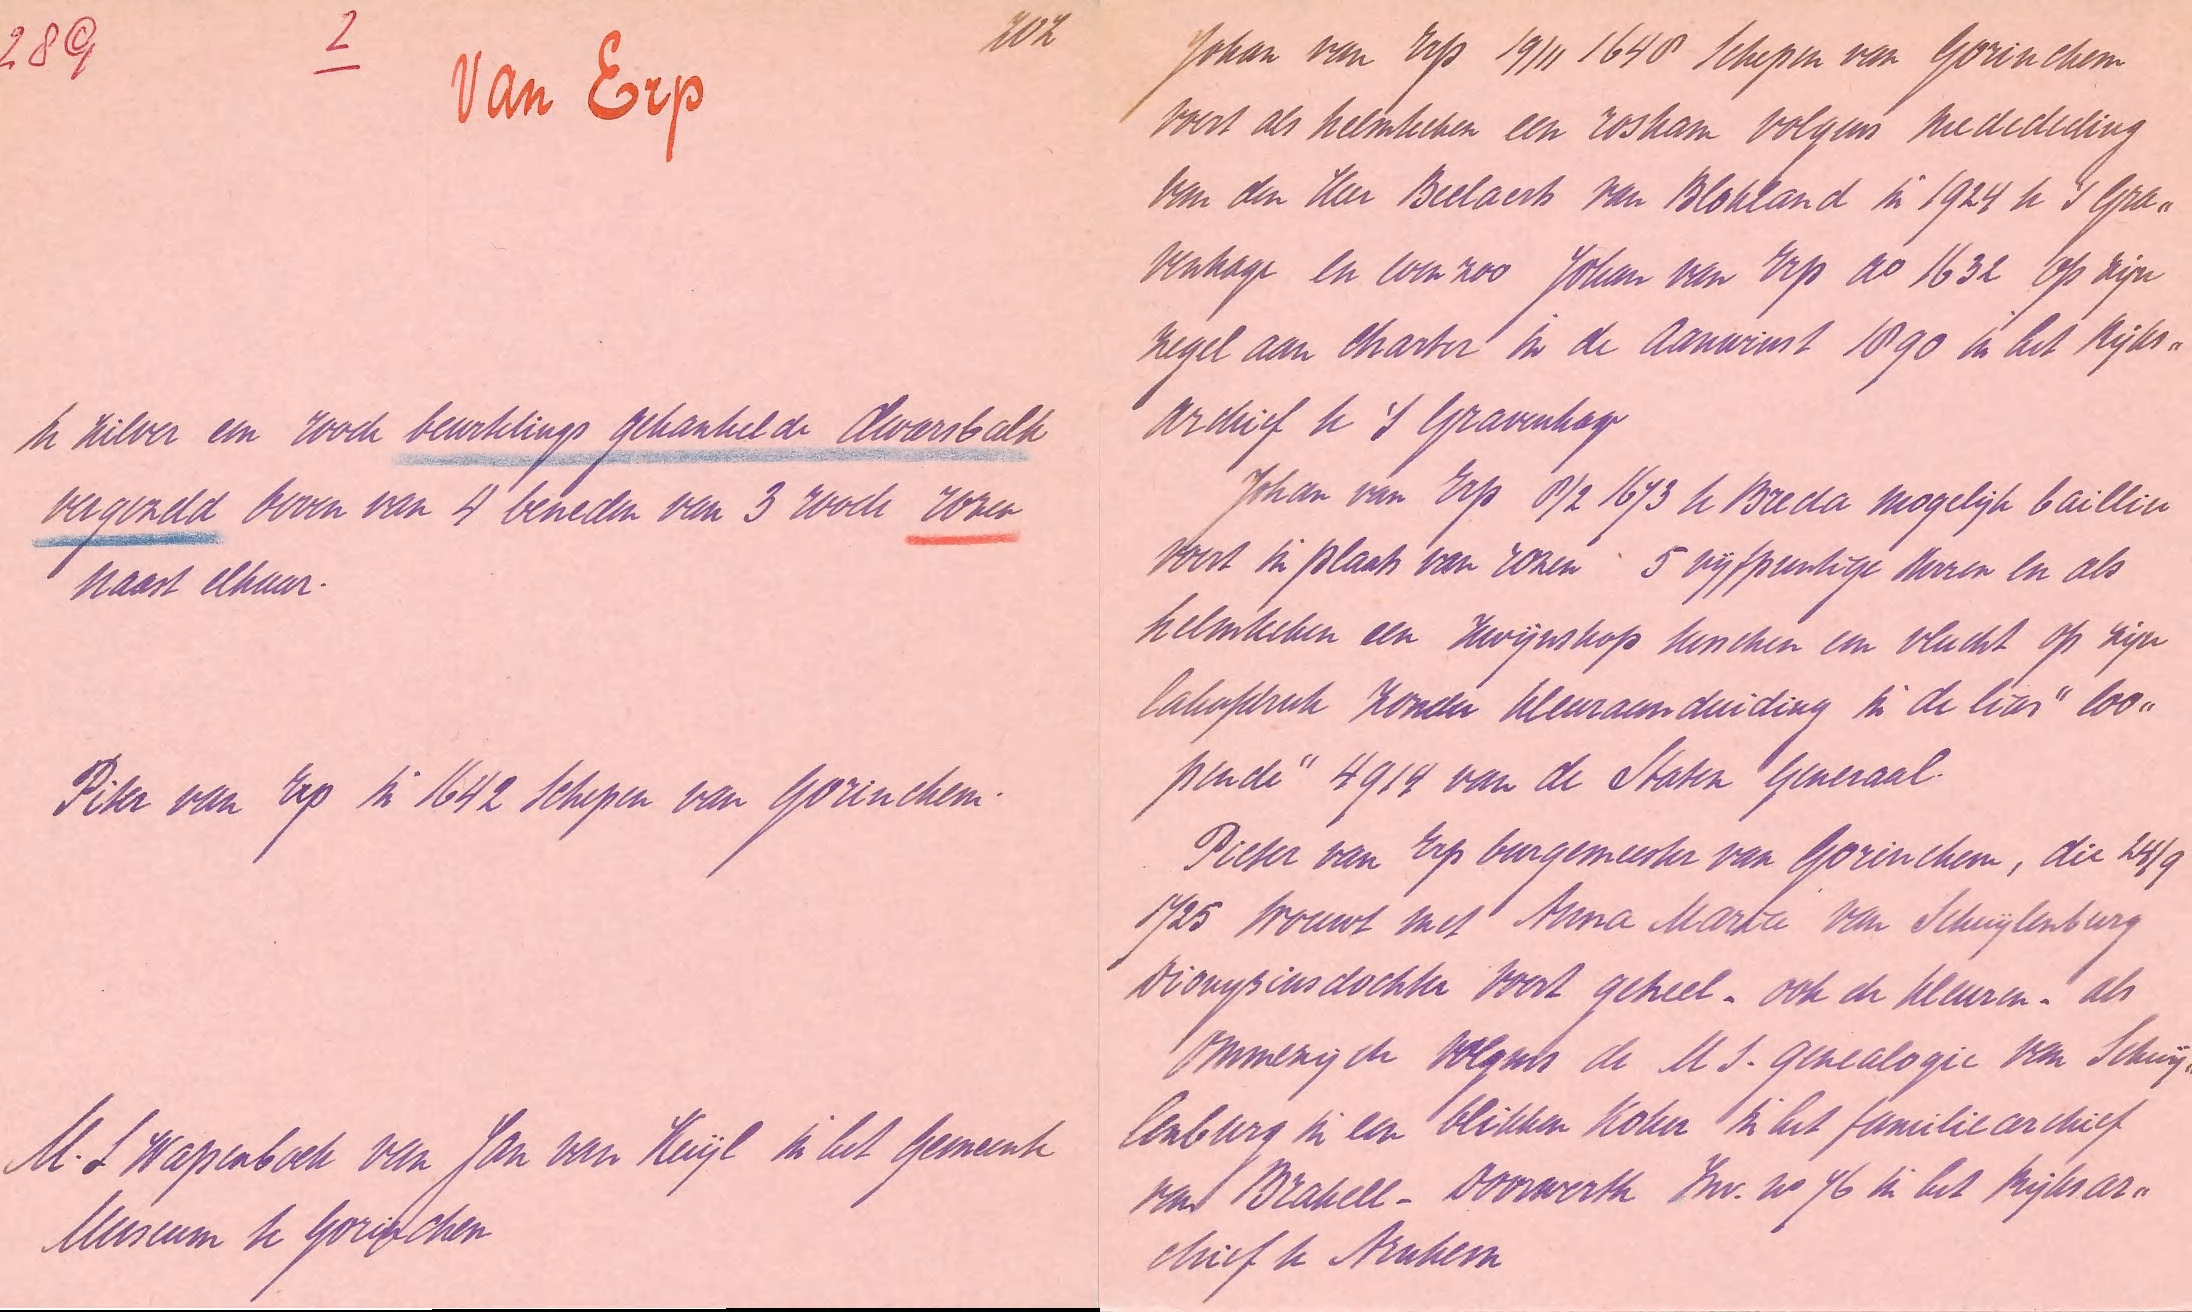 289
2
Van Erp
202
In zilver een roode beurtelings gekanteelde dwarsbalk
vergezeld boven van 4 beneden van 3 roode rozen
naast elkaar.
Pieter van Erp in 1642 schepen van Gorinchem.
M. S Wapenboek van Jan van Kuijl in het Gemeente
Museum te Gorinchem
Johan van Erp 19/11 1648 schepen van Gorinchem
voert als helmteken een roskam volgens mededeeling
van den Heer Beelaerts van Blokland in 1924 te 's Gra„
venhage en evenzoo Johan van Erp ao 1632 op zijn
zegel aan charter in de Aanwinst 1890 in het Rijks„
archief te 's Gravenhage
Johan van Erp 8/2 1673 te Breda mogelijk bailliu
voert in plaats van rozen 5 vijfpuntige sterren en als
helmteken een zwijnskop tusschen een vlucht op zijn
lakafdruk zonder kleuraanduiding in de lias "loo„
pende" 4914 van de Staten Generaal.
Pieter van Erp burgemeester van Gorinchem, die 24/9
1725 trouwt met Anna Maria van Schuijlenburg
Dionysiusdochter voert geheel - ook de kleuren - als
ommezijde volgens de M S. genealogie van Schuij„
lenburg in een blikken koker in het familiearchief
van Brakell - Doorwerth Inv. no 76 in het Rijksar„
chief te Arnhem